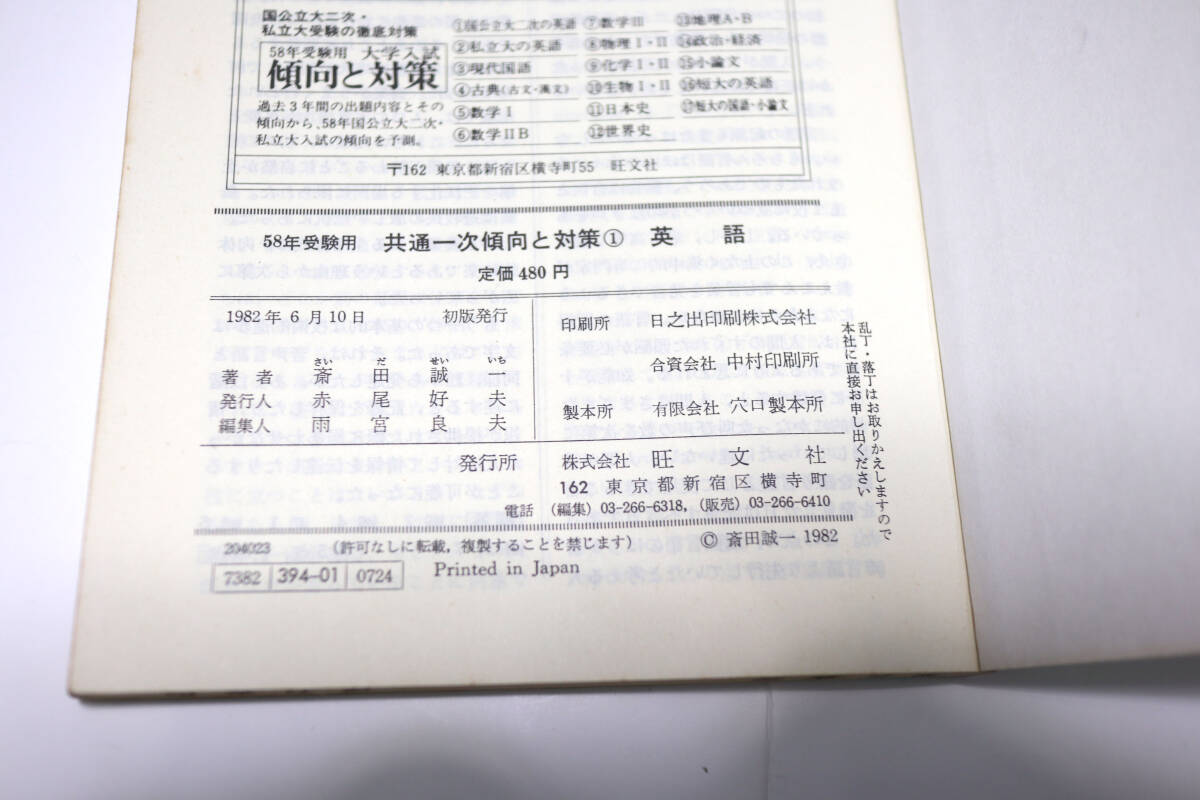 国公立大二次・
私立大受験の徹底対策
58年受験用 大学入試
傾向と対策
過去3年間の出題内容とその
傾向から、58年国公立大二次・
私立大入試の傾向を予測。
①国公立大二次の英語
②私立大の英語
③現代国語
④古典(古文・漢文)
⑤数学Ⅰ
⑥数学ⅡB
⑦数学Ⅲ
⑧物理Ⅰ・Ⅱ
⑨化学Ⅰ・Ⅱ
⑩生物Ⅰ・Ⅱ
⑪日本史
⑫世界史
⑬地理A・B
⑭政治・経済
⑮小論文
⑯短大の英語
⑰短大の国語・小論文
〒162 東京都新宿区横寺町55 旺文社
58年受験用 共通一次傾向と対策① 英語
定価480円
1982年6月10日 初版発行
さい だ せい いち
著者 斎田誠一
発行人 赤尾好夫
編集人 雨宮良夫
印刷所 日之出印刷株式会社
合資会社 中村印刷所
製本所 有限会社 穴口製本所
発行所 株式会社 旺文社
162 東京都新宿区横寺町
電話 (編集) 03-266-6318, (販売) 03-266-6410
乱丁・落丁はお取りかえしますので
本社に直接お申し出ください
204023 (許可なしに転載, 複製することを禁じます) © 斎田誠一 1982
7382 394-01 0724 Printed in Japan